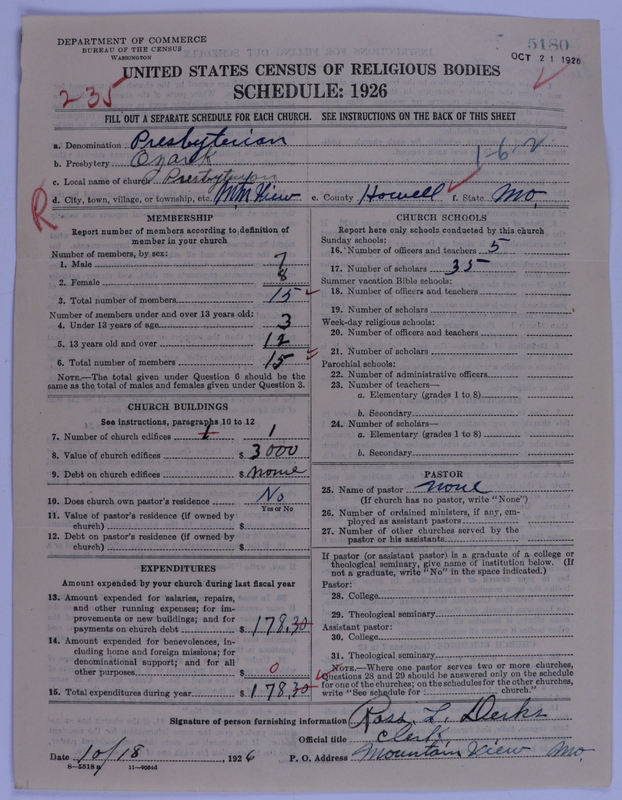 DEPARTMENT OF COMMERCE
BUREAU OF THE CENSUS
WASHINGTON
5180
OCT 21 1926
UNITED STATES CENSUS OF RELIGIOUS BODIES
SCHEDULE: 1926
235
FILL OUT A SEPARATE SCHEDULE FOR EACH CHURCH. SEE INSTRUCTIONS ON THE BACK OF THIS SHEET
a. Denomination Presbyterian
b. Presbytery Ozark
1-6-2
c. Local name of church Presbyterian
R
d. City, town, village, or township, etc. Mtn View e. County Howell f. State Mo.
MEMBERSHIP
Report number of members according to definition of
member in your church
Number of members, by sex:
1. Male 7
2. Female 8
3. Total number of members 15
Number of members under and over 13 years old:
4. Under 13 years of age 3
5. 13 years old and over 12
6. Total number of members 15
NOTE.—The total given under Question 6 should be the
same as the total of males and females given under Question 3.
CHURCH BUILDINGS
See instructions, paragraphs 10 to 12
7. Number of church edifices 1 1
8. Value of church edifices $ 3000
9. Debt on church edifices $ none
10. Does church own pastor's residence No
Yes or No
11. Value of pastor's residence (if owned by
church) $
12. Debt on pastor's residence (if owned by
church) $
EXPENDITURES
Amount expended by your church during last fiscal year
13. Amount expended for salaries, repairs,
and other running expenses; for im-
provements or new buildings; and for
payments on church debt $ 178.30
14. Amount expended for benevolences, in-
cluding home and foreign missions; for
denominational support; and for all
other purposes $ 0
15. Total expenditures during year $ 178.30
CHURCH SCHOOLS
Report here only schools conducted by this church
Sunday schools:
16. Number of officers and teachers 5
17. Number of scholars 35
Summer vacation Bible schools:
18. Number of officers and teachers
19. Number of scholars
Week-day religious schools:
20. Number of officers and teachers
21. Number of scholars
Parochial schools:
22. Number of administrative officers
23. Number of teachers—
a. Elementary (grades 1 to 8)
b. Secondary
24. Number of scholars—
a. Elementary (grades 1 to 8)
b. Secondary
PASTOR
25. Name of pastor none
(If church has no pastor, write "None")
26. Number of ordained ministers, if any, em-
ployed as assistant pastors
27. Number of other churches served by the
pastor or his assistants
If pastor (or assistant pastor) is a graduate of a college or
theological seminary, give name of institution below. (If
not a graduate, write "No" in the space indicated.)
Pastor:
28. College
29. Theological seminary
Assistant pastor:
30. College
31. Theological seminary
NOTE.—Where one pastor serves two or more churches,
Questions 28 and 29 should be answered only on the schedule
for one of the churches; on the schedules for the other churches,
write "See schedule for church."
Signature of person furnishing information Ross L. Derks
Official title Clerk
Date 10/18, 1926 P. O. Address Mountain View Mo.
8—5518a